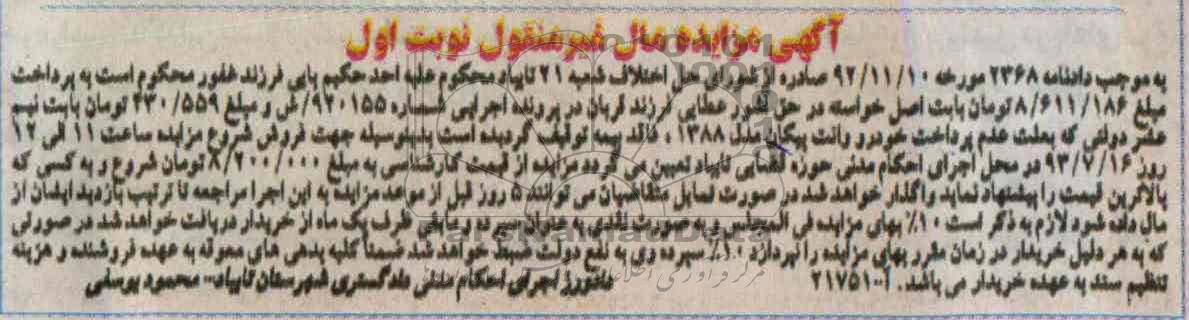 آگهی مزایده مال غیرمنقول نوبت اول
به موجب دادنامه ۲۳۶۸ مورخه ۹۲/۱۱/۱۰ صادره از شورای حل اختلاف شعبه ۲۱ تایباد محکوم علیه احد حکیم پایی فرزند غفور محکوم است به پرداخت
مبلغ ۸/۶۱۱/۱۸۶ تومان بابت اصل خواسته در حق عطایی فرزند قربان در پرونده اجرایی شماره ۹۲۰۱۵۵/ش و مبلغ ۴۳۰/۵۵۹ تومان بابت نیم
عشر دولتی که بعلت عدم پرداخت خودرو وانت پیکان مدل ۱۳۸۸ ، فاقد بیمه توقیف گردیده است بدینوسیله جهت فروش شروع مزایده ساعت ۱۱ الی ۱۲
روز ۹۳/۷/۱۶ در محل اجرای احکام مدنی حوزه قضایی تایباد تعیین می گردد مزایده از قیمت کارشناسی به مبلغ ۸/۲۰۰/۰۰۰ تومان شروع و به کسی که
بالاترین قیمت را پیشنهاد نماید واگذار خواهد شد در صورت تمایل متقاضیان می توانند ۵ روز قبل از موعد مزایده به این اجرا مراجعه تا ترتیب بازدید ایشان از
مال داده شود لازم به ذکر است ۱۰٪ بهای مزایده فی المجلس و به صورت نقدی به عنوان سپرده و مابقی ظرف یک ماه از خریدار دریافت خواهد شد در صورتی
که به هر دلیل خریدار در زمان مقرر بهای مزایده را نپردازد ۱۰٪ سپرده وی به نفع دولت ضبط خواهد شد ضمناً کلیه بدهی های معوقه به عهده فروشنده و هزینه
تنظیم سند به عهده خریدار می باشد. آ-۲۱۷۵۱
مامورز اجرای احکام مدنی دادگستری شهرستان تایباد - محمود یوسفی
ParsNamadData